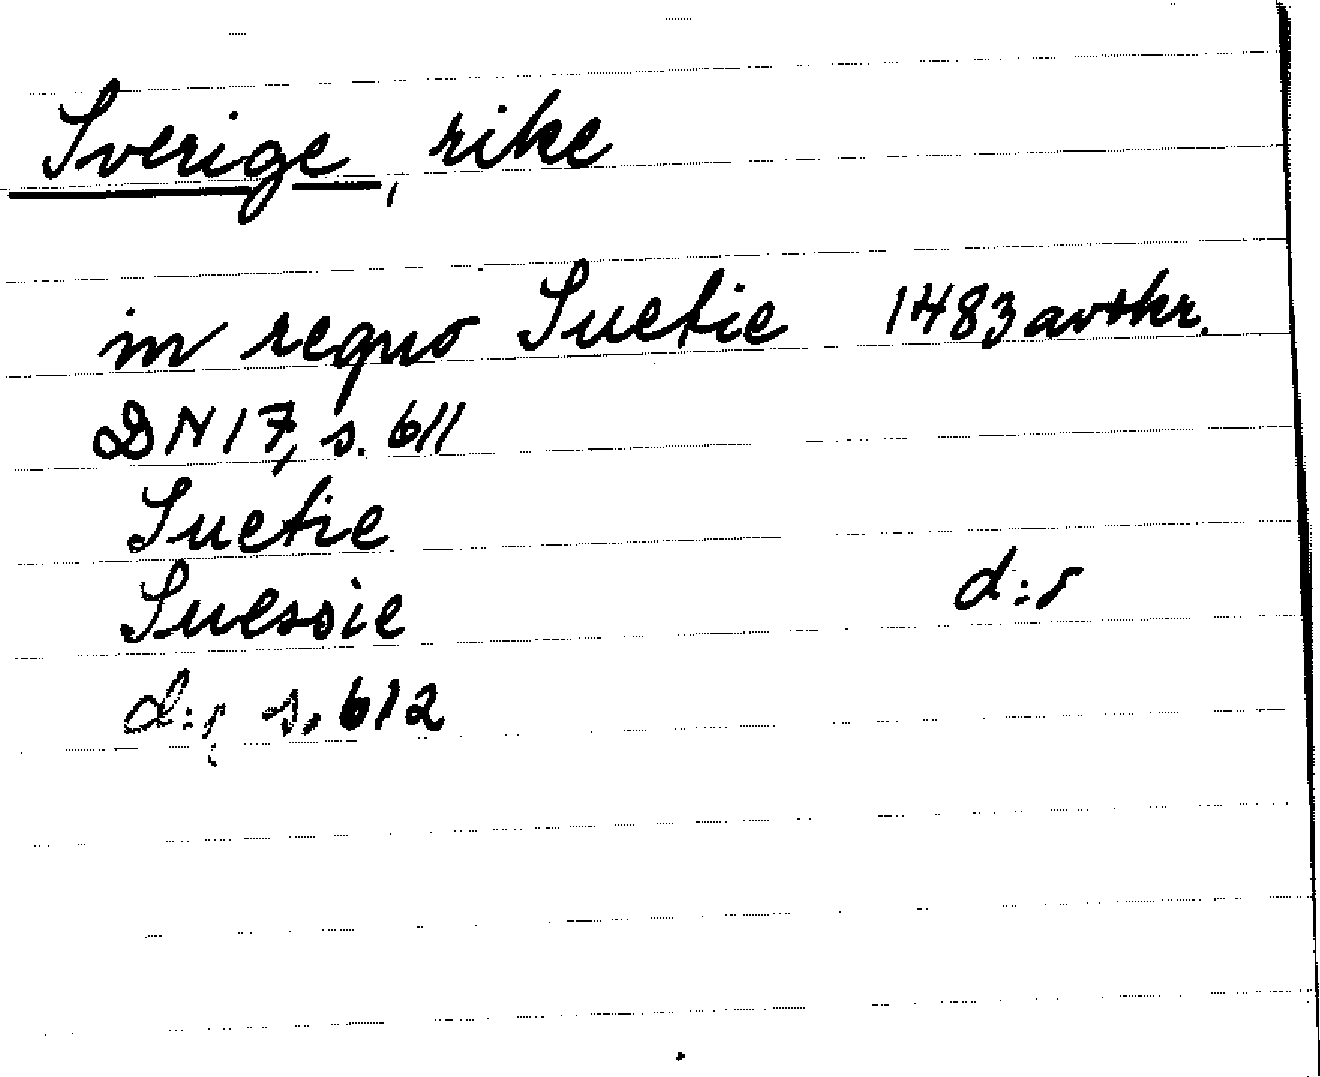 Sverige, rike
in regno Suetie 1483 avskr.
DN 17, s. 611
Suetie
Suessie d:o
d:o s. 612